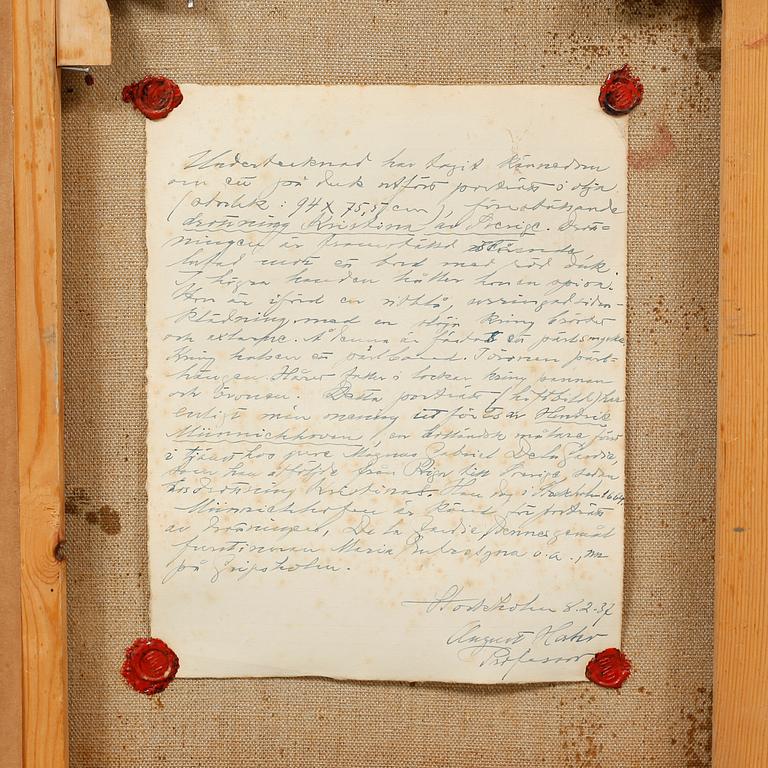 Undertecknad har tagit kännedom
om ett på duk utfört porträtt i olja
(storlek: 94 x 75,5 cm), föreställande
drottning Kristina av Sverige. Drott-
ningen är framställd stående
lutad mot ett bord med röd duk.
I högra handen håller hon en spira.
Hon är iförd en vitblå, urringad siden-
klädning med en slöja kring bröstet
och axlarne. Å denna är fästat ett pärlsmycke
kring halsen ett pärlband. I öronen pärl-
hängen. Håret faller i lockar kring pannan
och öronen. Detta porträtt (höftbild) har
enligt min mening utförts av Hendrik
Münnichhoven, en holländsk målare, förs
i tjänst hos greve Magnus Gabriel De la Gardie,
som han åtföljde från Riga till Sverige, sedan
hos drottning Kristina. Han dog i Stockholm 1664.
Münnichhofen är känd för porträtt
av drottningen, De la Gardie, dennes gemål
furstinnan Maria Eufrosyna o.a., nu
på Gripsholm.
Stockholm 8.2.37
August Hahr
Professor